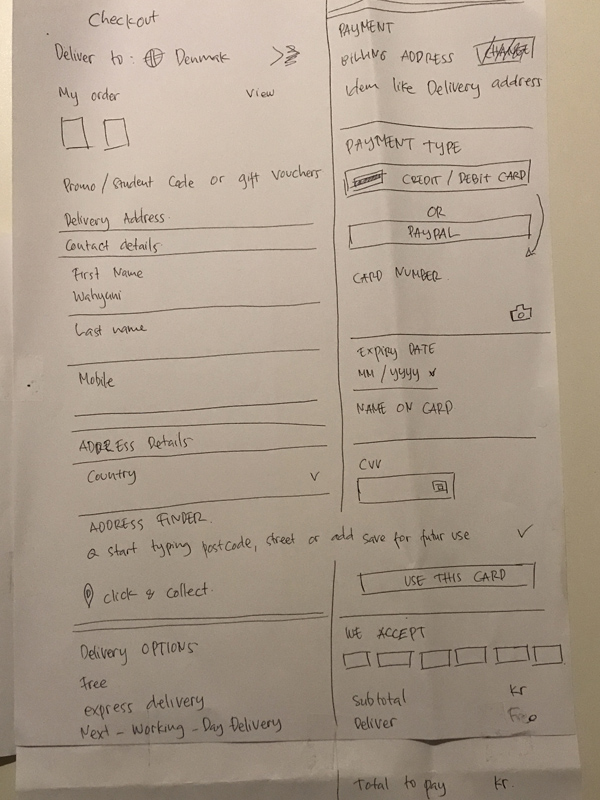 Checkout
Deliver to: Denmak
My order View
Promo/Student Code or gift vouchers
Delivery Address
Contact details
First Name
Wahyuni
Last name
Mobile
ADDRESS Details
Country
ADDRESS FINDER.
start typing postcode, street or add save for futur use
click & collect.
Delivery OPTIONS
Free
express delivery
Next-Working-Day Delivery
PAYMENT
BILLING ADDRESS CHANGE
idem like Delivery address
PAYMENT TYPE
CREDIT / DEBIT CARD
OR
PAYPAL
CARD NUMBER.
Expiry DATE
MM / YYYY
NAME ON CARD
CVV
USE THIS CARD
WE ACCEPT
Subtotal kr
Deliver
Total to pay kr.